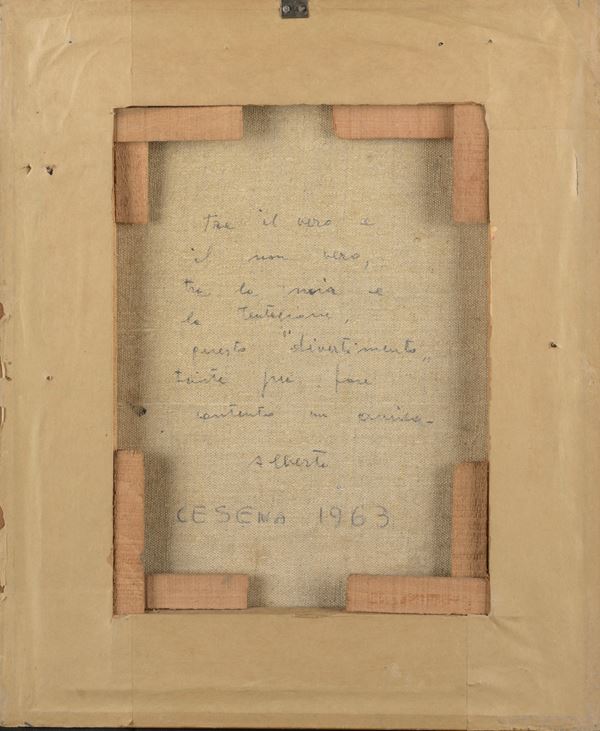 tra il vero e
il non vero,
tra la noia e
la tentazione,
questo "divertimento"
triste per fare
contento un amico-
Alberto
CESENA 1963